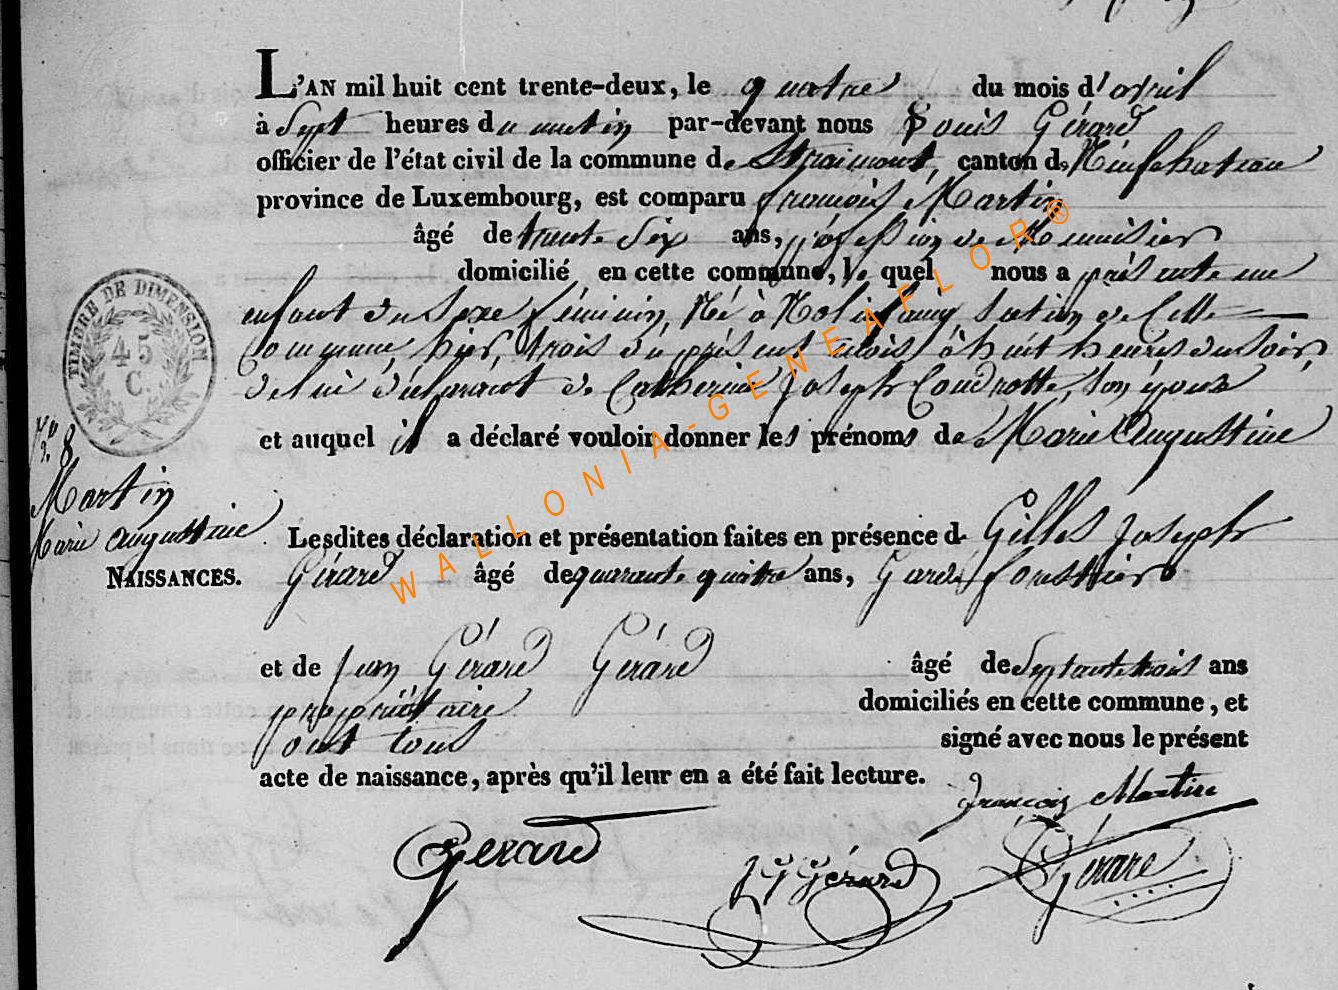 L'AN mil huit cent trente-deux, le quatre du mois d'avril
à Sept heures du matin par-devant nous Louis Gérard
officier de l'état civil de la commune de Straimont, canton de Neufchateau
province de Luxembourg, est comparu françois Martin
âgé de trente Six ans, profession de Menuisier
domicilié en cette commune, le quel nous a présenté un
enfant du Sexe féminin, Né à Section de Cette
Commune, hier, trois du présent mois, à huit heures du soir,
de lui déclarant de Catherine Joseph Son épouse
et auquel il a déclaré vouloir donner les prénoms de Marie Augustine
TIMBRE DE DIMENSION
45
C.
N.º 8
Martin
Marie Augustine
NAISSANCES.
Lesdites déclaration et présentation faites en présence de Gilles Joseph
Gérard âgé de quarante quatre ans, Garde forestier
et de Jean Gérard Gérard âgé de Septante trois ans
propriétaire domiciliés en cette commune, et
ont tous signé avec nous le présent
acte de naissance, après qu'il leur en a été fait lecture.
françois Martin
Gerard
Gérard
Gérard
WALLONIA-GENEAFLOR®